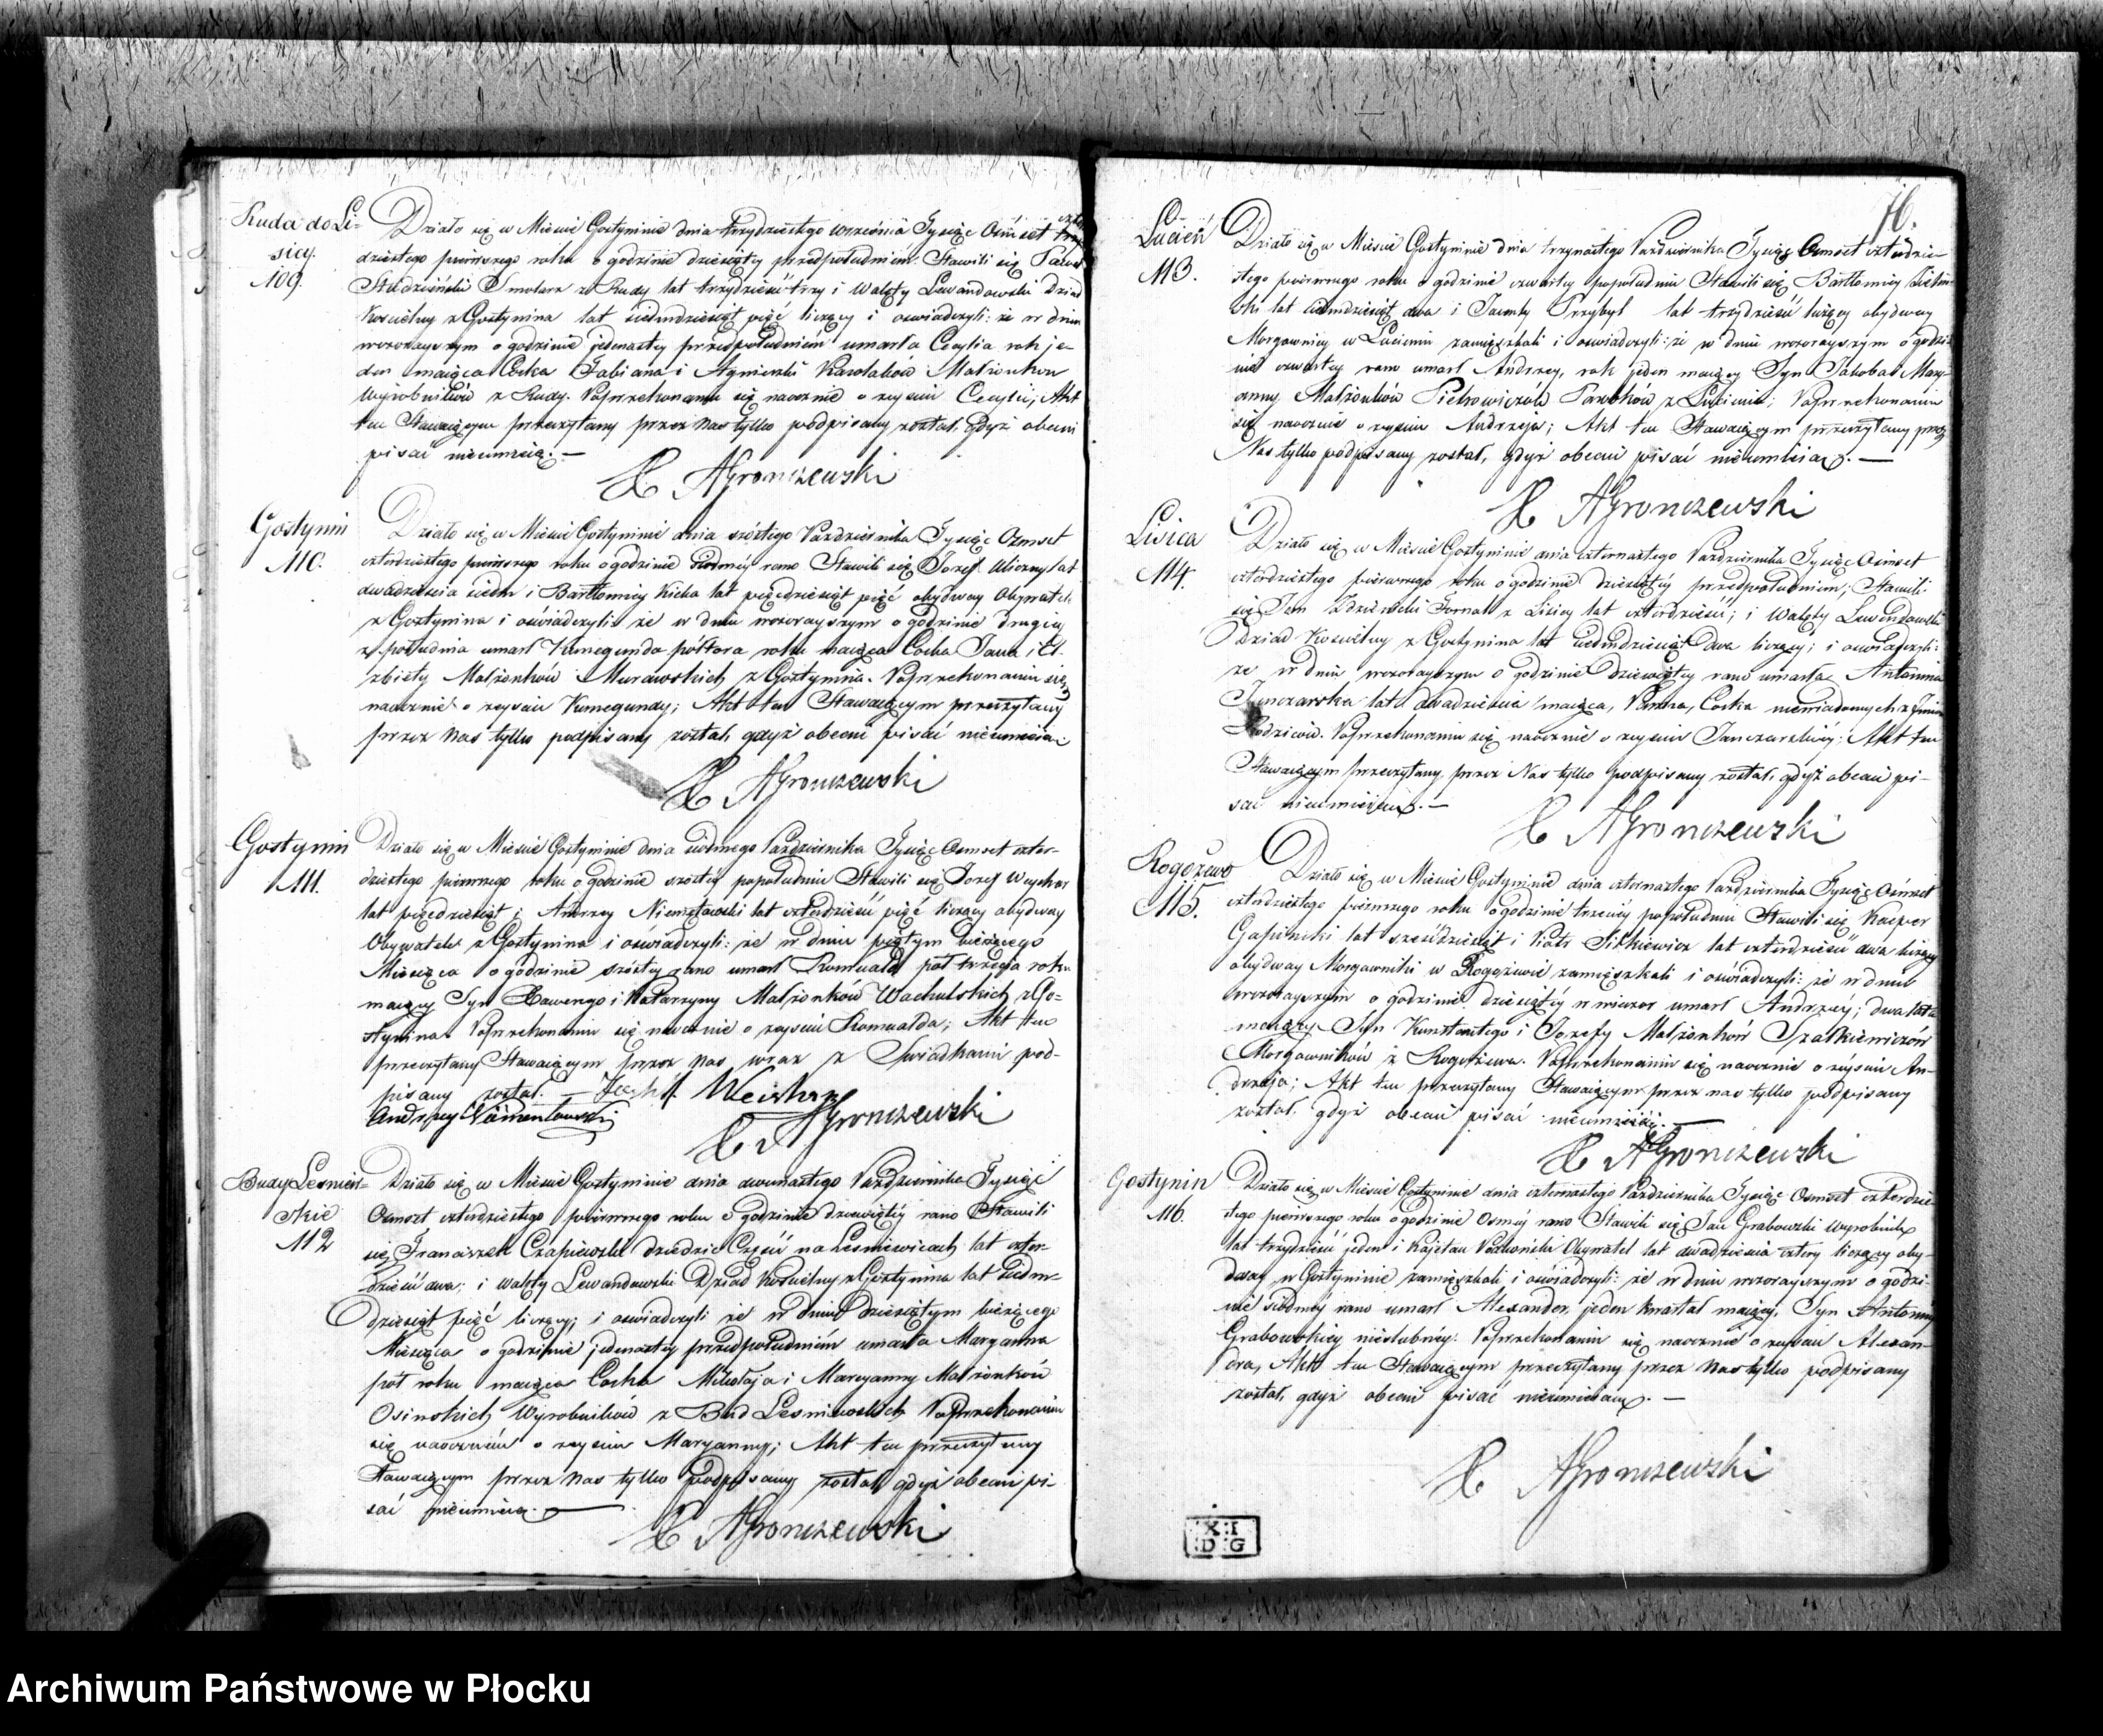 Ruda do Li=
sicy.
109.
Działo się w Mieście Gostyninie dnia trzydziestego września Tysiąc Osmset
dziestego pierwszego roku o godzinie dziesiątey przedpołudniem. Stawili się Paweł
Studziński Smolarz z Rudy lat trzydzieści trzy i Walęty Lewandowski Dziad
Kościelny z Gostynina lat siedmdziesiąt pięć liczący i oswiadczyli: że w dniu
wczorayszym o godzinie jedenastey przedpołudniem umarła Cecylia rok je-
den maiąca Córka Fabiana i Agnieszki Karolaków Małżonków
Wyrobników z Rudy. Poprzekonaniu się naocznie o zeyściu Cecylii; Akt
ten Stawaiącym przeczytany przez Nas tylko podpisany został, gdyż obecni
pisać nieumieią. —
X AGronczewski
Gostynin
110.
Działo się w Mieście Gostyninie dnia szóstego Października Tysiąc Ozmset
czterdziestego pierwszego roku o godzinie siódmey rano Stawili się Józef Uliczny lat
dwadzieścia siedm i Bartłomiey Kicka lat pięędziesiąt pięć obydway Obywatele
z Gostynina i oświadczyli że w dniu wczorayszym o godzinie drugiey
z południa umarł Kunegunda półtora roku maiąca Córka Jana i El-
żbiety Małżonków Murawskich z Gostynina. Poprzekonaniu się
naocznie o zeyściu Kunegundy; Akt ten Stawaiącym przeczytany
przez Nas tylko podpisany został, gdyż obecni pisać nieumieią.
X AGronczewski
Gostynin
111.
Działo się w Mieście Gostyninie dnia siódmego Października Tysiąc Osmset czter-
dziestego pierwszego roku o godzinie szóstey popołudniu Stawili się Józef Weycher
lat pięędziesiąt i Andrzey lat czterdzieści pięć liczący obydway
Obywatele z Gostynina i oświadczyli: że w dniu piątym bieżącego
Miesiąca o godzinie szóstey rano umarł Romuald pół trzecia roku
maiący Syn Xawerego i Katarzyny Małżonków Wachulskich z Go=
stynina. Poprzekonaniu się naocznie o zeyściu Romualda; Akt ten
przeczytany Stawaiącym przez Nas wraz z Swiadkami pod-
pisany został. —
X AGronczewski
Budy Lesniew=
skie
112
Działo się w Mieście Gostyninie dnia dwunastego Października Tysiąc
Osmset czterdziestego pierwszego roku o godzinie dziewiątey rano Stawili
się Franciszek Czapiewski dziedzic Części na Lesniewicach lat czter-
dzieści dwa; i Walęty Lewandowski Dziad Kościelny z Gostynina lat siedm-
dziesiąt pięć liczący; i oswiadczyli że w dniu dziesiątym bieżącego
Miesiąca o godzinie jedenastey przedpołudniem umarła Maryanna
pół roku maiąca Córka Mikołaja i Maryanny Małżonków
Osinskich Wyrobników z Bud Lesniewskich Poprzekonaniu
się naocznem o zeyściu Maryanny; Akt ten przeczytany
Stawaiącym przez Nas tylko podpisany został, gdyż obecni pi-
sać nieumieią. —
X AGronczewski
76.
Lucień
113.
Działo się w Mieście Gostyninie dnia trzynastego Października Tysiąc Osmset czterdzie-
stego pierwszego roku o godzinie czwartey popołudniu Stawili się Bartłomiey
ski lat siedmdziesiąt dwa i Jacenty Przybył lat trzydzieści liczący obydway
Morgownicy w Lucieniu zamięszkali i oświadczyli: że w dniu wczorayszym o godzi-
nie czwartey rano umarł Andrzey, rok jeden maiący Syn Jakoba i Mary-
anny Małżonków Pietrowiczów Parobków z Lucienia; Poprzekonaniu
się naocznie o zeyściu Andrzeja; Akt ten Stawaiącym przeczytany przez
Nas tylko podpisany został, gdyż obecni pisać nieumieią. —
X AGronczewski
Lisica
114.
Działo się w Mieście Gostyninie dnia czternastego Października Tysiąc Osmset
czterdziestego pierwszego roku o godzinie dziesiątey przedpołudniem; Stawili
się Jan Zdziewski Fornal z Lisicy lat czterdzieści; i Walęty Lewandowski
Dziad Kościelny z Gostynina lat siedmdziesiąt dwa liczący; i oswiadczyli:
że w dniu wczorayszym o godzinie dziewiątey rano umarła Antonina
Janczarska lat dwadzieścia maiąca, Panna, Córka niewiadomych z Jmion
Rodziców. Poprzekonaniu się naocznie o zeyściu Janczarskiey; Akt ten
Stawaiącym przeczytany, przez Nas tylko podpisany został, gdyż obecni pi-
sać nieumieią. —
X AGronczewski
Rogożewo
115.
Działo się w Mieście Gostyninie dnia czternastego Października Tysiąc Osmset
czterdziestego pierwszego roku o godzinie trzeciey popołudniu Stawili się Kacper
Gapinski lat sześćdziesiąt i Piotr Sitkiewicz lat czterdzieści dwa liczący
obydway Morgowniki w Rogożewie zamięszkali i oświadczyli: że w dniu
wczorayszym o godzinie dziesiątey w wieczor umarł Andrzey; dwa lata
maiący Syn Konstantego i Jozefy Małżonków Szatkiewiczów
Morgowników z Rogożewa. Poprzekonaniu się naocznie o zeyściu An-
drzeja; Akt ten przeczytany Stawaiącym przez nas tylko podpisany
został, gdyż obecni pisać nieumieią. —
X AGronczewski
Gostynin
116.
Działo się w Mieście Gostyninie dnia czternastego Października Tysiąc Osmset czterdzie-
stego pierwszego roku o godzinie Osmey rano Stawili się Jan Grabowski Wyrobnik
lat trzydzieści jeden i Kajetan Obywatel lat dwadzieścia cztery liczący oby-
dway w Gostyninie zamięszkali i oświadczyli: że w dniu wczorayszym o godzi-
nie siódmey rano umarł Alexander, jeden kwartał maiący, Syn Antoniny
Grabowskiey nieślubney. Poprzekonaniu się naocznie o zeyściu Alexan-
dra, Akt ten Stawaiącym przeczytany przez Nas tylko podpisany
został, gdyż obecni pisać nieumieią. —
X AGronczewski
X I
D G
Archiwum Państwowe w Płocku